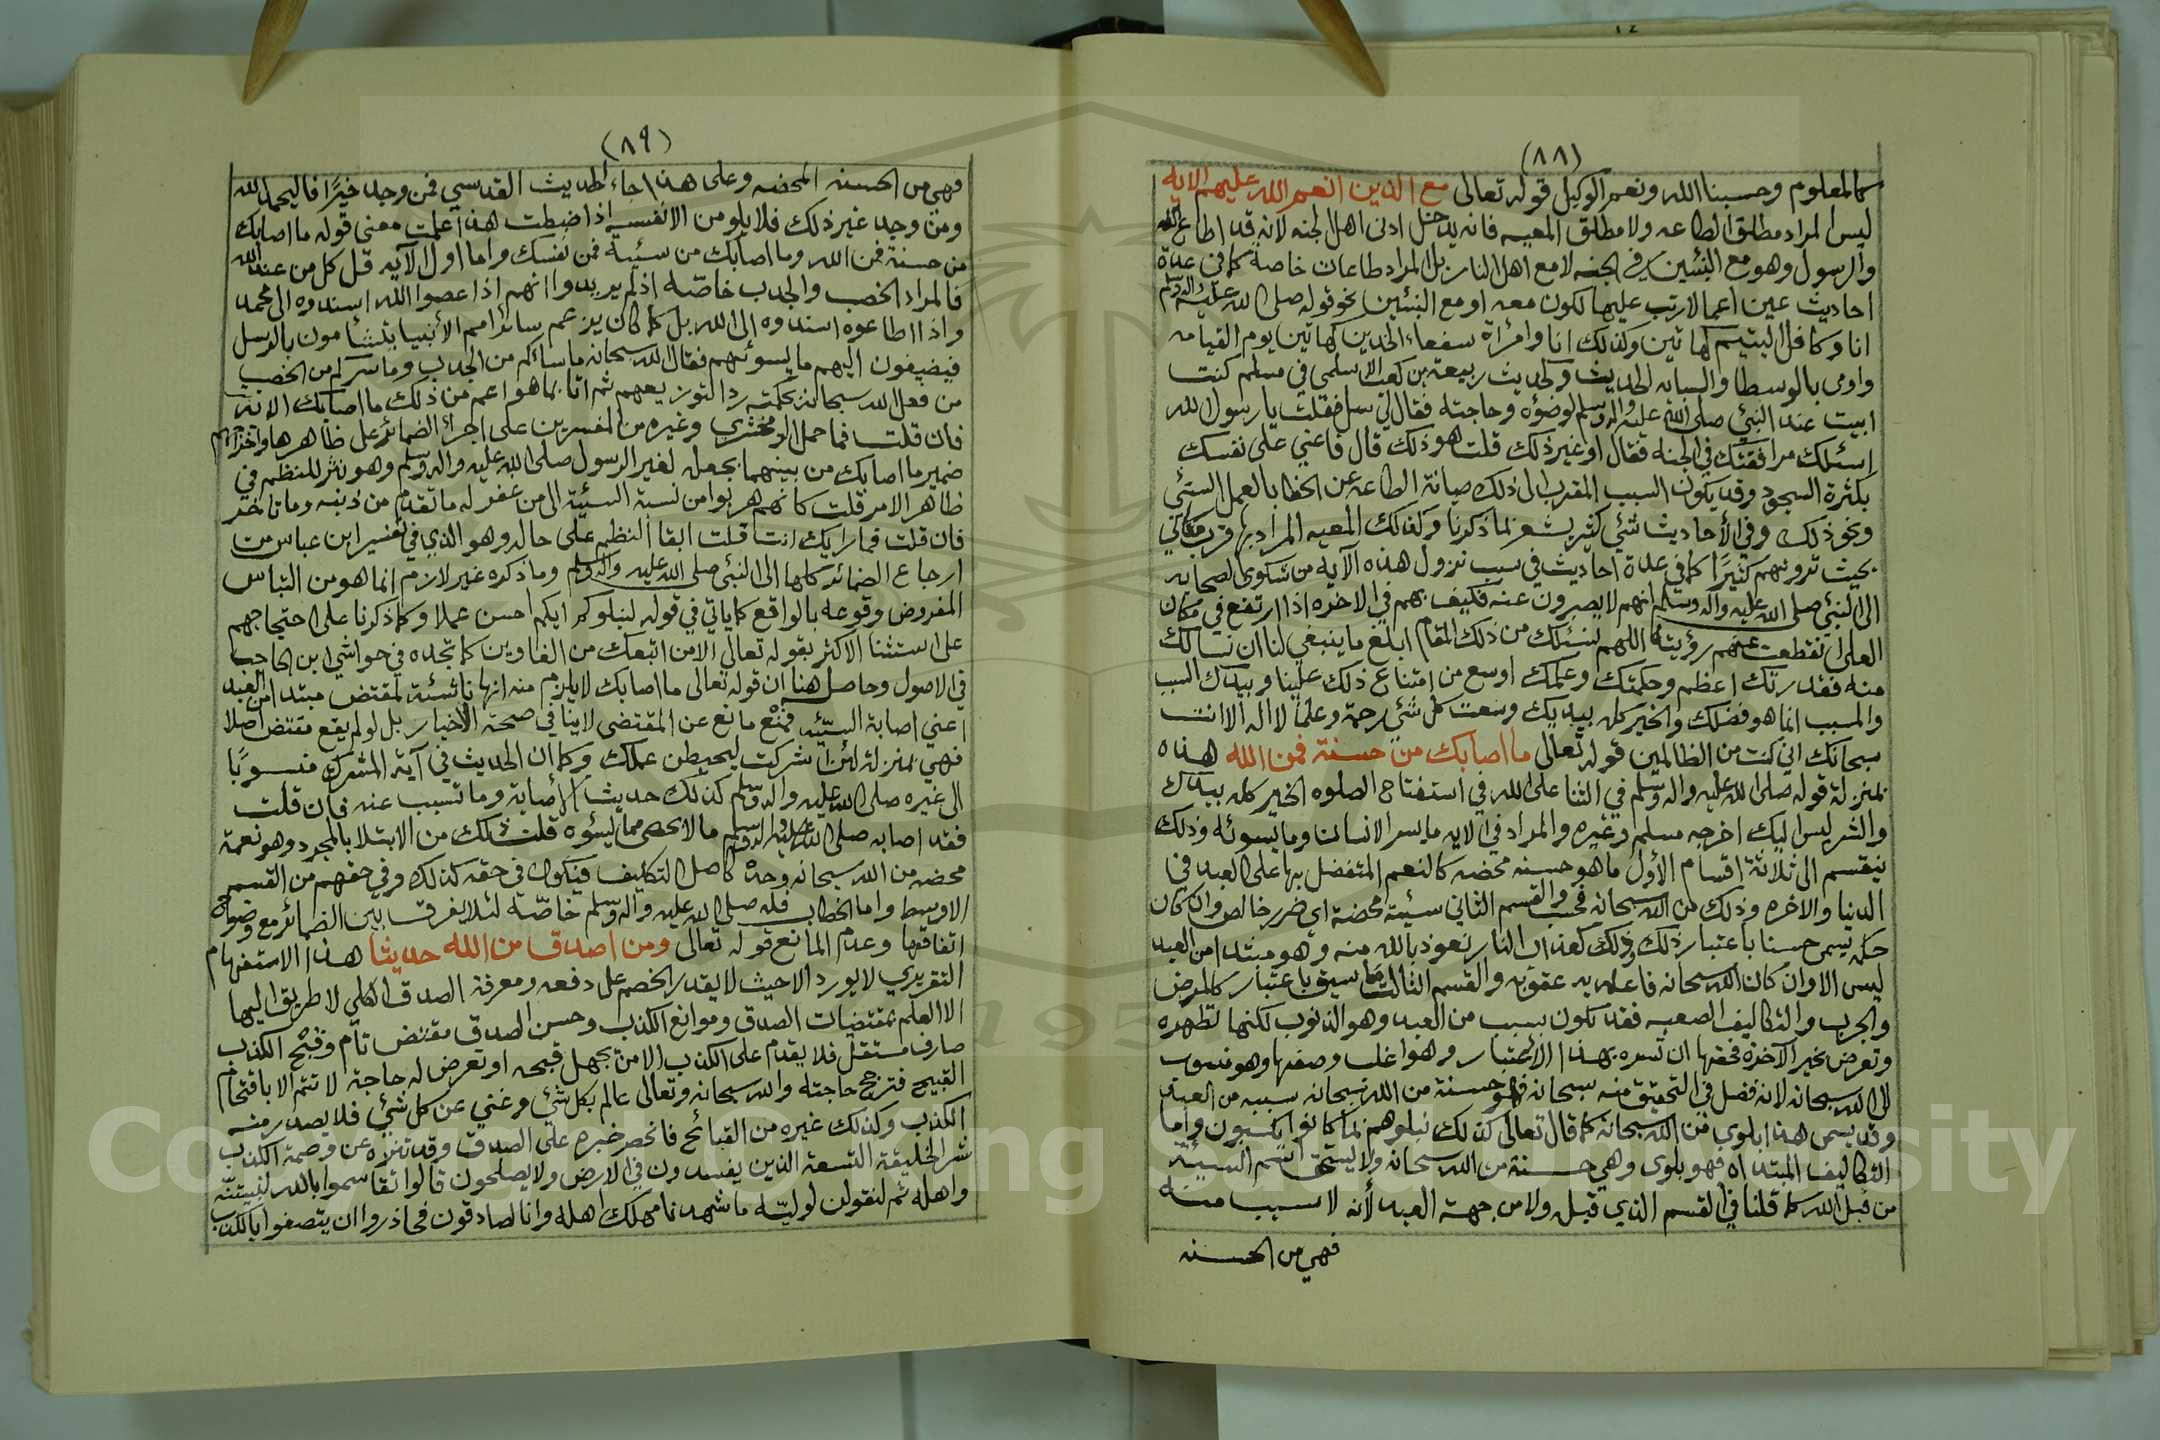 (٨٨)
كالمعلوم وحسبنا الله ونعم الوكيل قوله تعالى مع الذين انعم الله عليهم الآيه
ليس المراد مطلق الطاعه ولا مطلق المعيه فانه يدخل ادنى اهل الجنه لانه قد اطاع الله
والرسول وهو مع النبئين في الجنه لا مع اهل النار بل المراد طاعات خاصة كما في عدة
احاديث عين اعمالا رتب عليها الكون معه او مع النبئين نحو قوله صلى الله عليه واله وسلم
انا وكافل اليتيم كهاتين وكذلك انا وامرأة سفعاء الخدين كهاتين يوم القيامه
واومى بالوسطا والسبابه الحديث وحديث ربيعة بن كعب الاسلمي في مسلم كنت
ابيت عند النبئ صلى الله عليه واله وسلم لوضؤه وحاجته فقال لي سل فقلت يا رسول الله
اسئلك مرافقتك في الجنه فقال او غير ذلك قلت هو ذلك قال فاعني على نفسك
بكثرة السجود وقد يكون السبب المقرب الى ذلك صيانة الطاعه عن الخطا بالعمل السئ
ونحو ذلك وفي الأحاديث شئ كثير يشعر بما ذكرنا وكذلك المعيه المراد بها قرب مكاني
بحيث ترونهم كثيرًا كما في عدة احاديث في سبب نزول هذه الآيه من شكوى الصحابه
الى النبئ صلى الله عليه وآله وسلم انهم لا يصبرون عنه فكيف بهم في الاخره اذا ارتفع في مكان
العلى انقطعت عنهم رؤيته اللهم نسئلك من ذلك المقام ابلغ ما ينبغي لنا ان نسالك
منه فقدرتك اعظم وحكمتك وعلمك اوسع من امتناع ذلك علينا وبيدك السبب
والمسبب انما هو فضلك والخير كله بيديك وسعت كل شئ رحمة وعلما لا اله الا انت
سبحانك اني كنت من الظالمين قوله تعالى ما اصابك من حسنة فمن الله هذه
بمنزلة قوله صلى الله عليه واله وسلم في الثنا على الله في استفتاح الصلوه الخير كله بيديك
والشر ليس اليك اخرجه مسلم وغيره والمراد في الايه ما يسر الانسان وما يسوئه وذلك
ينقسم الى ثلاثة اقسام الأول ما هو حسنه محضه كالنعم المتفضل بها على العبد في
الدنيا والاخره وذلك من الله سبحانه فحسب والقسم الثاني سيئة محضة اي ضرر خالص وان كان
حكمه يسمى حسنا باعتبار ذلك وذلك كعذاب النار نعوذ بالله منه وهو مبتدا من العبد
ليس الا وان كان الله سبحانه فاعله به عقوبه والقسم الثالث ما سيق باعتبار كالمرض
والجرب والتكاليف الصعبه فقد تكون بسبب من العبد وهو الذنوب لكنها تطهره
وتعرض بخير الآخرة فحقها ان تسره بهذا الاعتبار وهو اغلب وصفها وهو منسوب
الى الله سبحانه لانه فضل في التحقيق منه سبحانه فهو حسنة من الله سبحانه سببه من العبد
وقد يسمى هذا بلوى من الله سبحانه كما قال تعالى كذلك نبلوهم بما كانوا يكسبون وأما
التكاليف المبتداه فهو بلوى وهي حسنة من الله سبحانه ولا يستحق اسم السيئة
من قبل الله كما قلنا في القسم الذي قبله ولا من جهة العبد لأنه لا سبب منه
فهي من الحسنه
(٨٩)
فهي من الحسنه المحضه وعلى هذا جاء الحديث القدسي فمن وجد خيرًا فاليحمد الله
ومن وجد غير ذلك فلا يلومن الا نفسه اذا ضبطت هذا علمت معنى قوله ما اصابك
من حسنة فمن الله وما اصابك من سئيه فمن نفسك واما اول الآيه قل كل من عند الله
فالمراد الخصب والجدب خاصّه اذ لم يريدوا انهم اذا عصوا الله اسندوه الى محمد
واذا اطاعوه اسندوه الى الله بل كما كان يزعم سائر امم الأنبيا يتشأمون بالرسل
فيضيفون اليهم ما يسوئهم فقال الله سبحانه ما ساءكم من الجدب وما سركم من الخصب
من فعل الله سبحانه بحكمته رد التوزيعهم ثم اتا بما هو اعم من ذلك ما اصابك الايه
فان قلت فما حمل الزمخشري وغيره من المفسرين على اجراء الضمائر على ظاهرها واخراجهم
ضمير ما اصابك من بينهما بجعله لغير الرسول صلى الله عليه واله وسلم وهو نثر للنظم في
ظاهر الامر قلت كانهم هربوا من نسبة السيئة الى من غفر له ما تقدم من ذنبه وما تاخر
فان قلت فما رايك انت قلت ابقا النظم على حاله وهو الذي في تفسير ابن عباس من
ارجاع الضمائر كلها الى النبئ صلى الله عليه واله وسلم وما ذكره غير لازم انما هو من التباس
المفروض وقوعه بالواقع كما ياتي في قوله ليبلوكم ايكم احسن عملا وكما ذكرنا على احتجاجهم
على استثنا الاكثر بقوله تعالى الا من اتبعك من الغاوين كما تجده في حواشي ابن الحاجب
في الاصول وحاصل هنا ان قوله تعالى ما اصابك لا يلزم منه انها ناشئة لمقتض مبتدا من العبد
اعني اصابة السيّئه فمنْع مانع عن المقتضى لا ينافي صحة الأخبار بل لو لم يقع مقتض اصلا
فهي بمنزلة لئن أشركت ليحبطن عملك وكما ان الحديث في آية المشرك منسوبًا
الى غيره صلى الله عليه واله وسلم كذلك حديث الأصابه وما تسبب عنه فان قلت
فقد اصابه صلى الله عليه واله وسلم ما لا يحصى مما يسؤه قلت ذلك من الابتلا بالمجرد وهو نعمة
محضه من الله سبحانه وحده كاصل التكليف فيكون في حقه كذلك وفي حقهم من القسم
الاوسط واما الخطاب فله صلى الله عليه واله وسلم خاصّة لئلا يفرق بين الضمائر مع وضوح
اتفاقها وعدم المانع قوله تعالى ومن اصدق من الله حديثا هذا الاستفهام
التقريري لا يورد الا حيث لا يقدر الخصم على دفعه ومعرفة الصدق الكلي لا طريق اليها
الا العلم بمقتضيات الصدق وموانع الكذب وحسن الصدق مقتض تآم وقبْح الكذب
صارف مستقل فلا يقدم على الكذب الا من يجهل قبحه او تعرض له حاجة لا تتم الا باقتحام
القبيح فترجح حاجته والله سبحانه وتعالى عالم بكل شئ وغني عن كل شئ فلا يصدر منه
الكذب وكذلك غيره من القبائح فانحصر خبره على الصدق وقد تنزه عن وصمة الكذب
شر الخليقة التسعة الذين يفسدون في الارض ولا يصلحون قالوا تقاسموا بالله لنبيتنّه
واهله ثم لنقولن لوليّه ما شهدنا مهلك اهله وانا لصادقون فحاذروا ان يتصفوا بالكذب
Copyright © King Saud University
1957